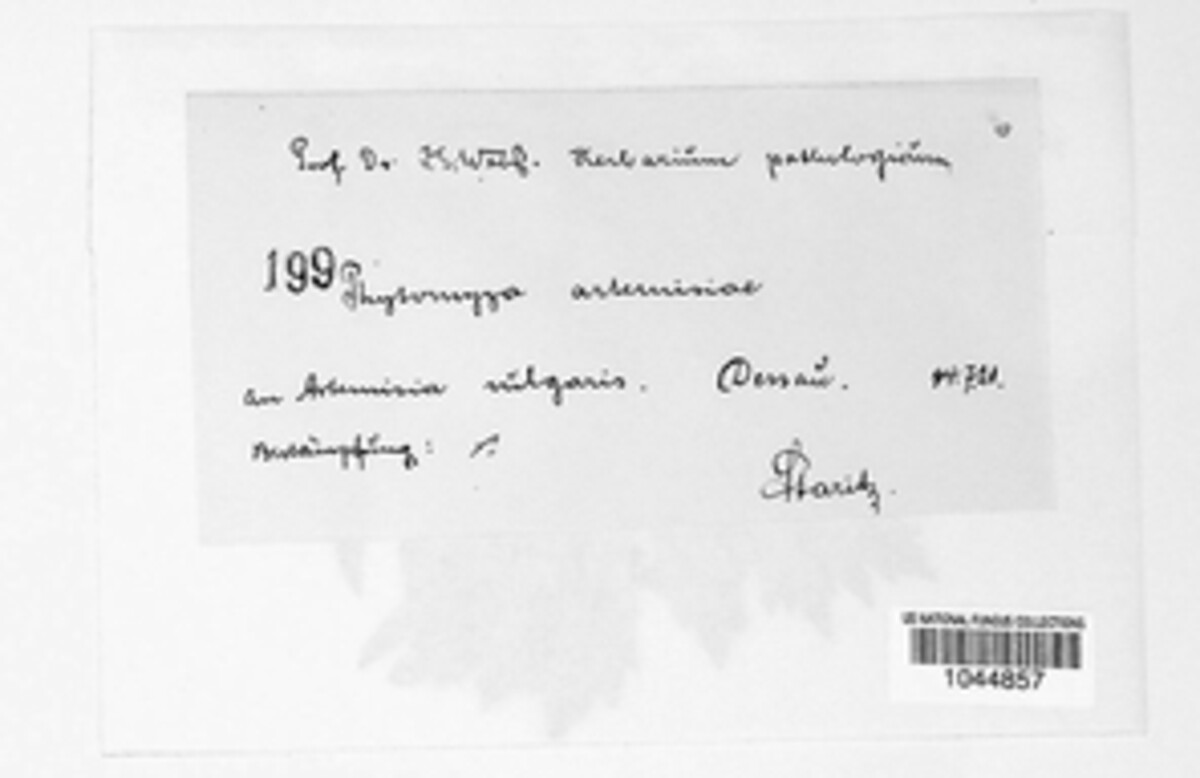 Prof. Dr. Herbarium pathologicum
199 Phytomyza artemisiae
an Artemisia vulgaris. Dessau.
Bekämpfung:
Staritz.
US NATIONAL FUNGUS COLLECTIONS
1044857